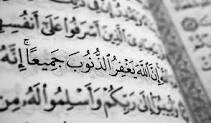 الَّذِينَ أَسْرَفُوا عَلَىٰ أَنفُسِهِ
إِنَّ اللَّهَ يَغْفِرُ الذُّنُوبَ جَمِيعًا ۚ إِنَّهُ
وَأَنِيبُوا إِلَىٰ رَبِّكُمْ وَأَسْلِمُوا لَهُ مِن